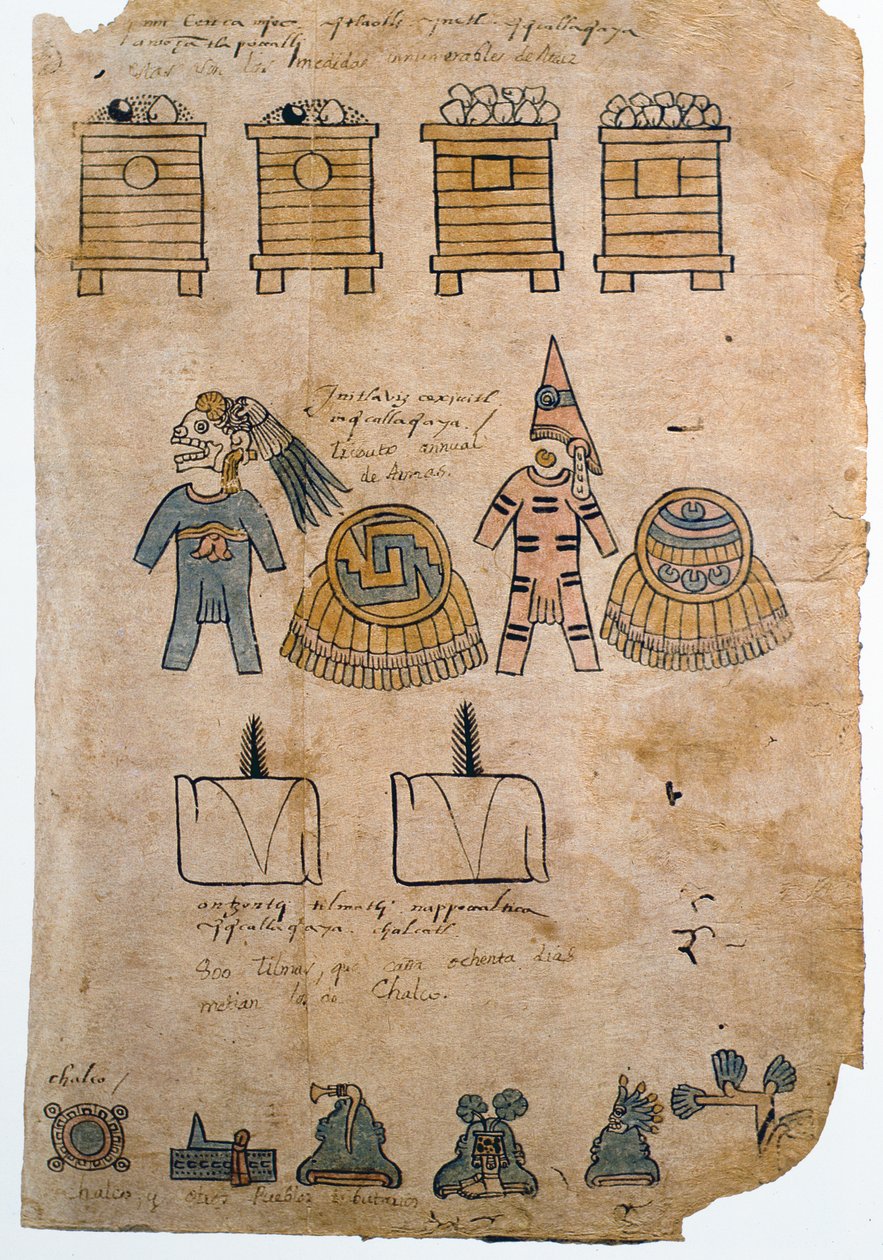 Cenca miec tlaolli
tlapoualli
Estas son las medidas innumerables de Maiz
Jnitlaviz cexiuitl
inqcallaqaya. /
tributo annual
de Armas.
ontzontli tilmatli nappoaltica
qqcallaqaya. chalcatl.
800 Tilmas, que cada ochenta dias
metian los de Chalco.
chalco /
Chalco, y otros Pueblos tributarios